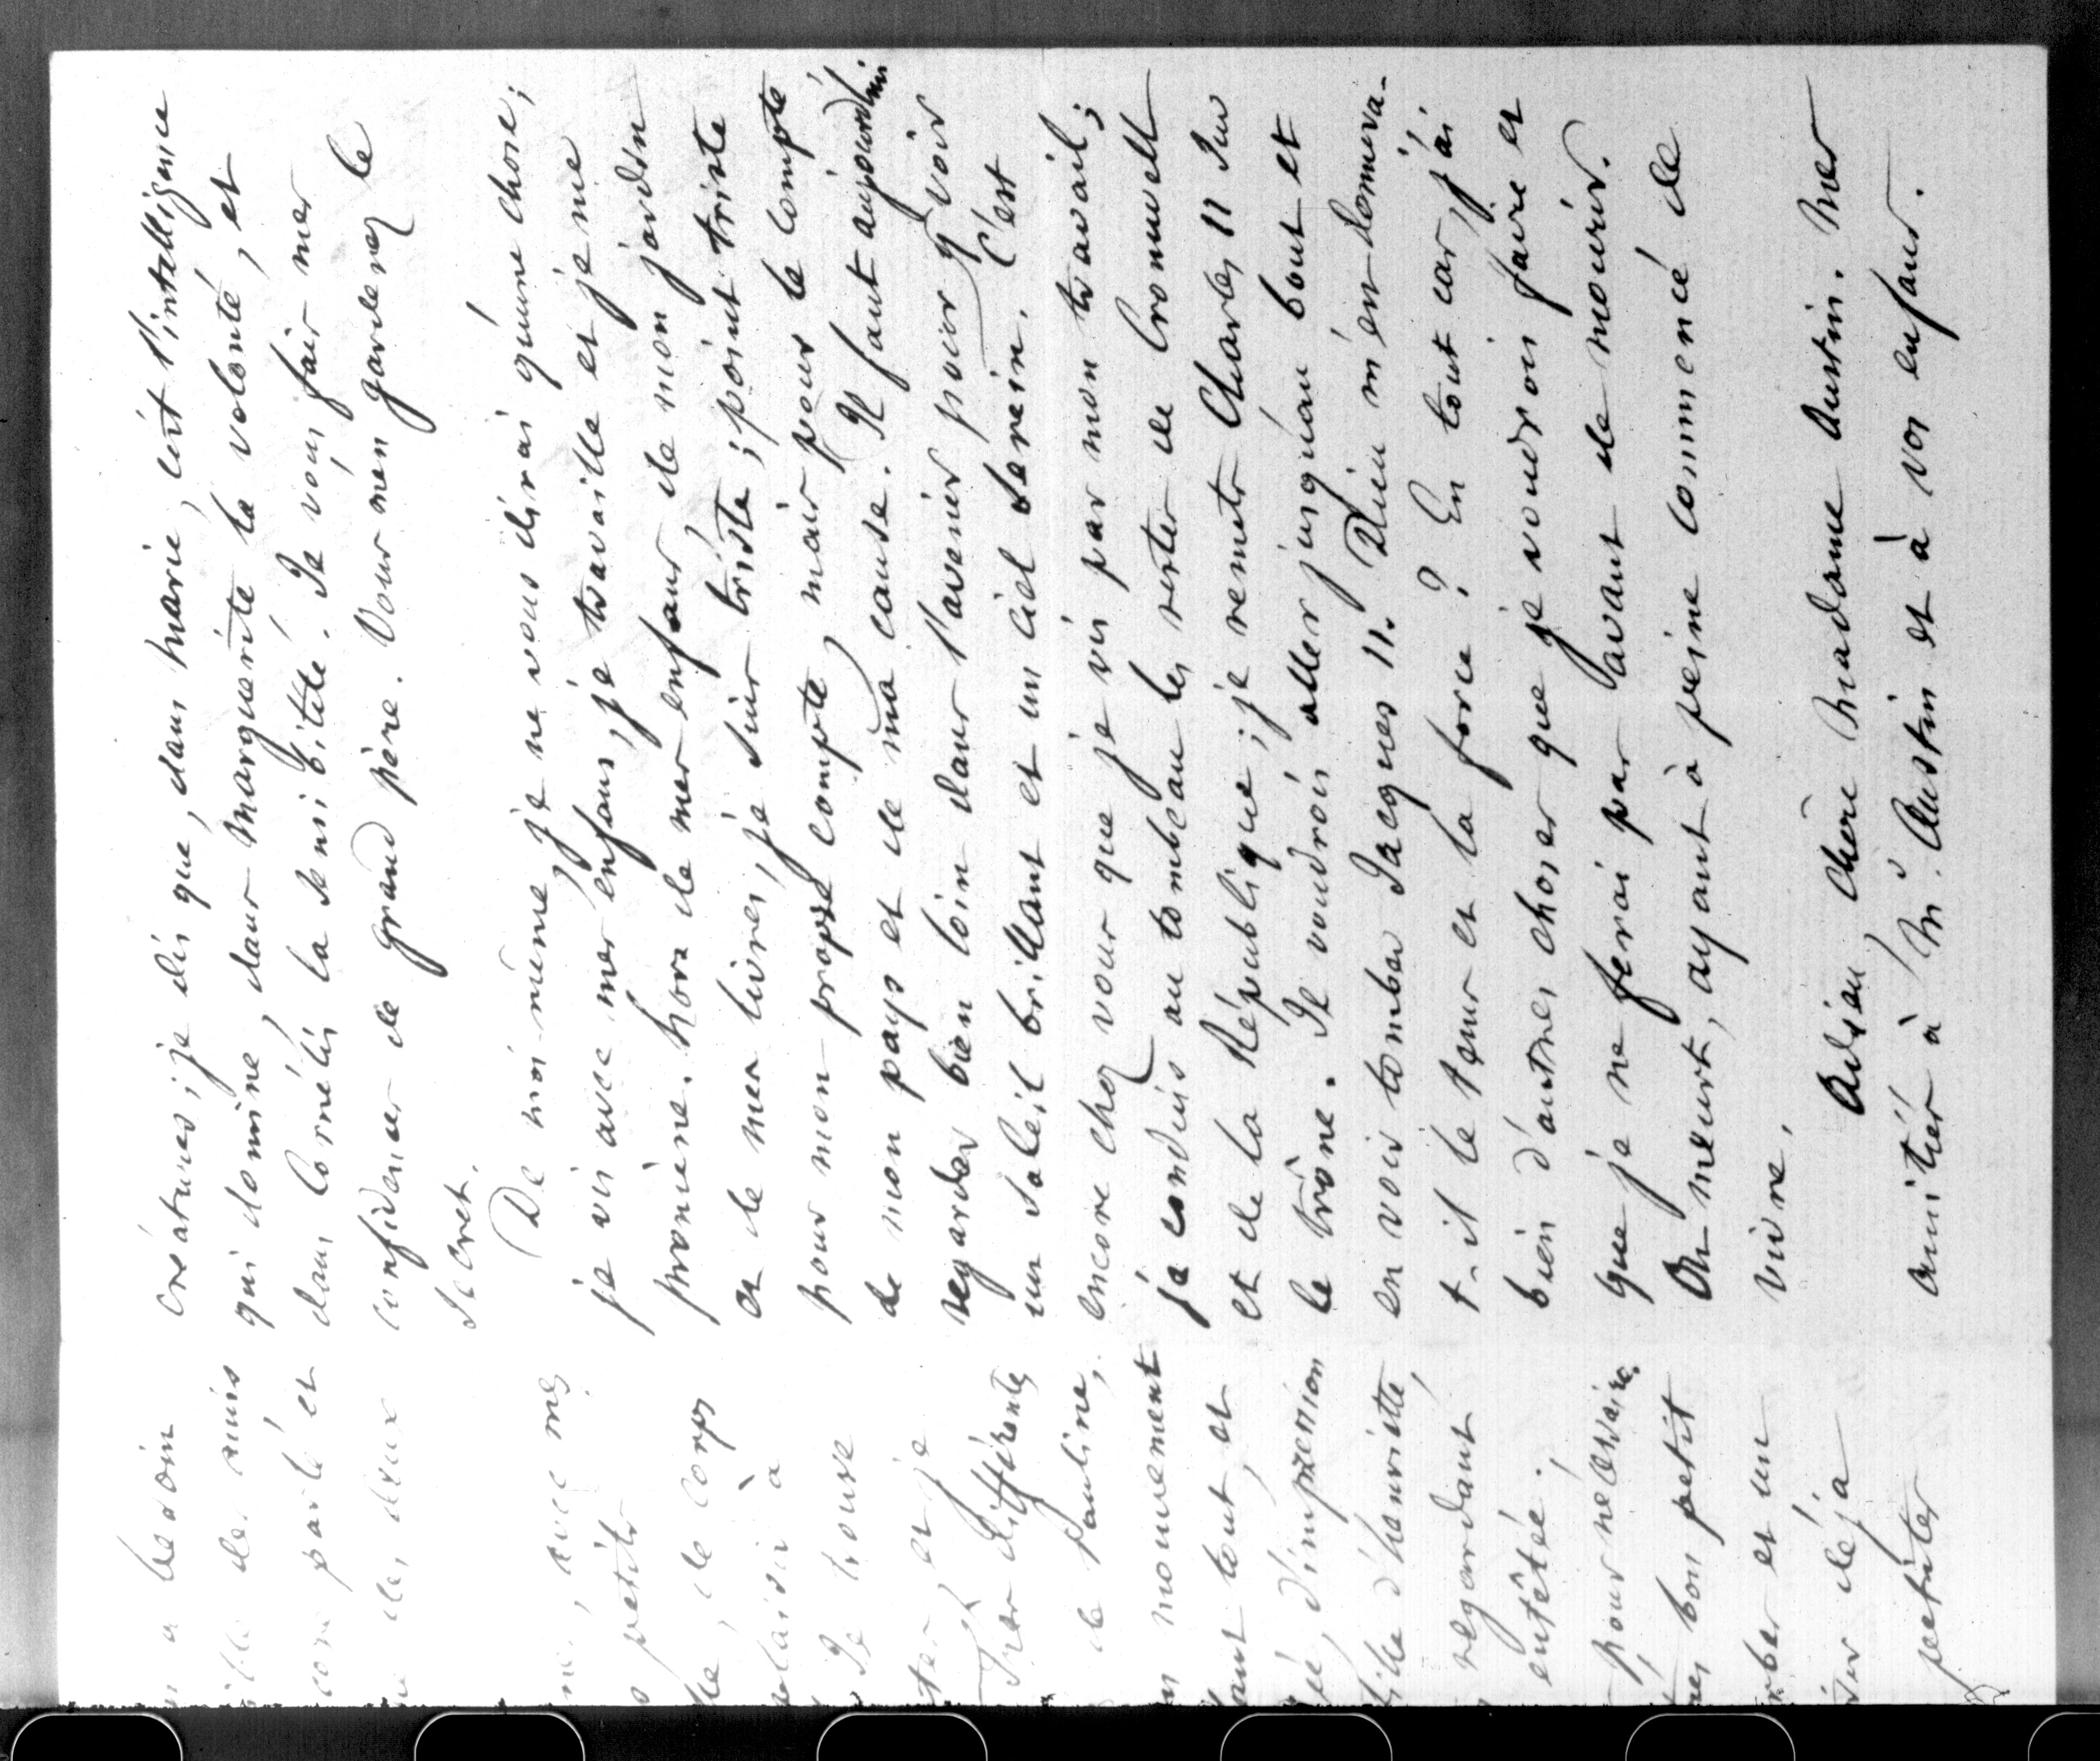 a besoin
de suis
parlé et
deux
avec mes
petits
de corps
plaisir à
Je trouve
et je
Très différentes
de Pauline,
mouvement
tout, et
d'impression
d'henriette,
regardant
entêtée ;
pour nécessaire,
bon petit
et un
déjà
petites
créatures ; je dis que, dans Marie, c'est l'intelligence
qui domine, dans Marguerite la volonté, et
dans Cornélis la sensibilité. Je vous fais mes
confidences de grand père. Vous m'en garderez le
secret.
De moi-même, je ne vous dirai qu'une chose ;
je vis avec mes enfans, je travaille et je me
promène. Hors de mes enfans, de mon jardin
et de mes livres, je suis triste ; point triste
pour mon propre compte, mais pour le compte
de mon pays et de ma cause. Il faut aujourd'hui
regarder bien loin dans l'avenir pour y voir
un soleil brillant et un ciel serein. C'est
encore chez vous que je vis par mon travail ;
je conduis au tombeau les restes de Cromwell
et de la République ; je remets Charles II sur
le trône. Je voudrois aller jusqu'au bout et
en voir tomber Jacques II. Dieu m'en donnera-
t-il le tems et la force ? En tout cas, j'ai
bien d'autres choses que je voudrois faire et
que je ne ferai pas avant de mourir.
On meurt, ayant à peine commencé de
vivre.
Adieu, chère Madame Austin. Mes
amitiés à Mr. Austin et à vos enfans.